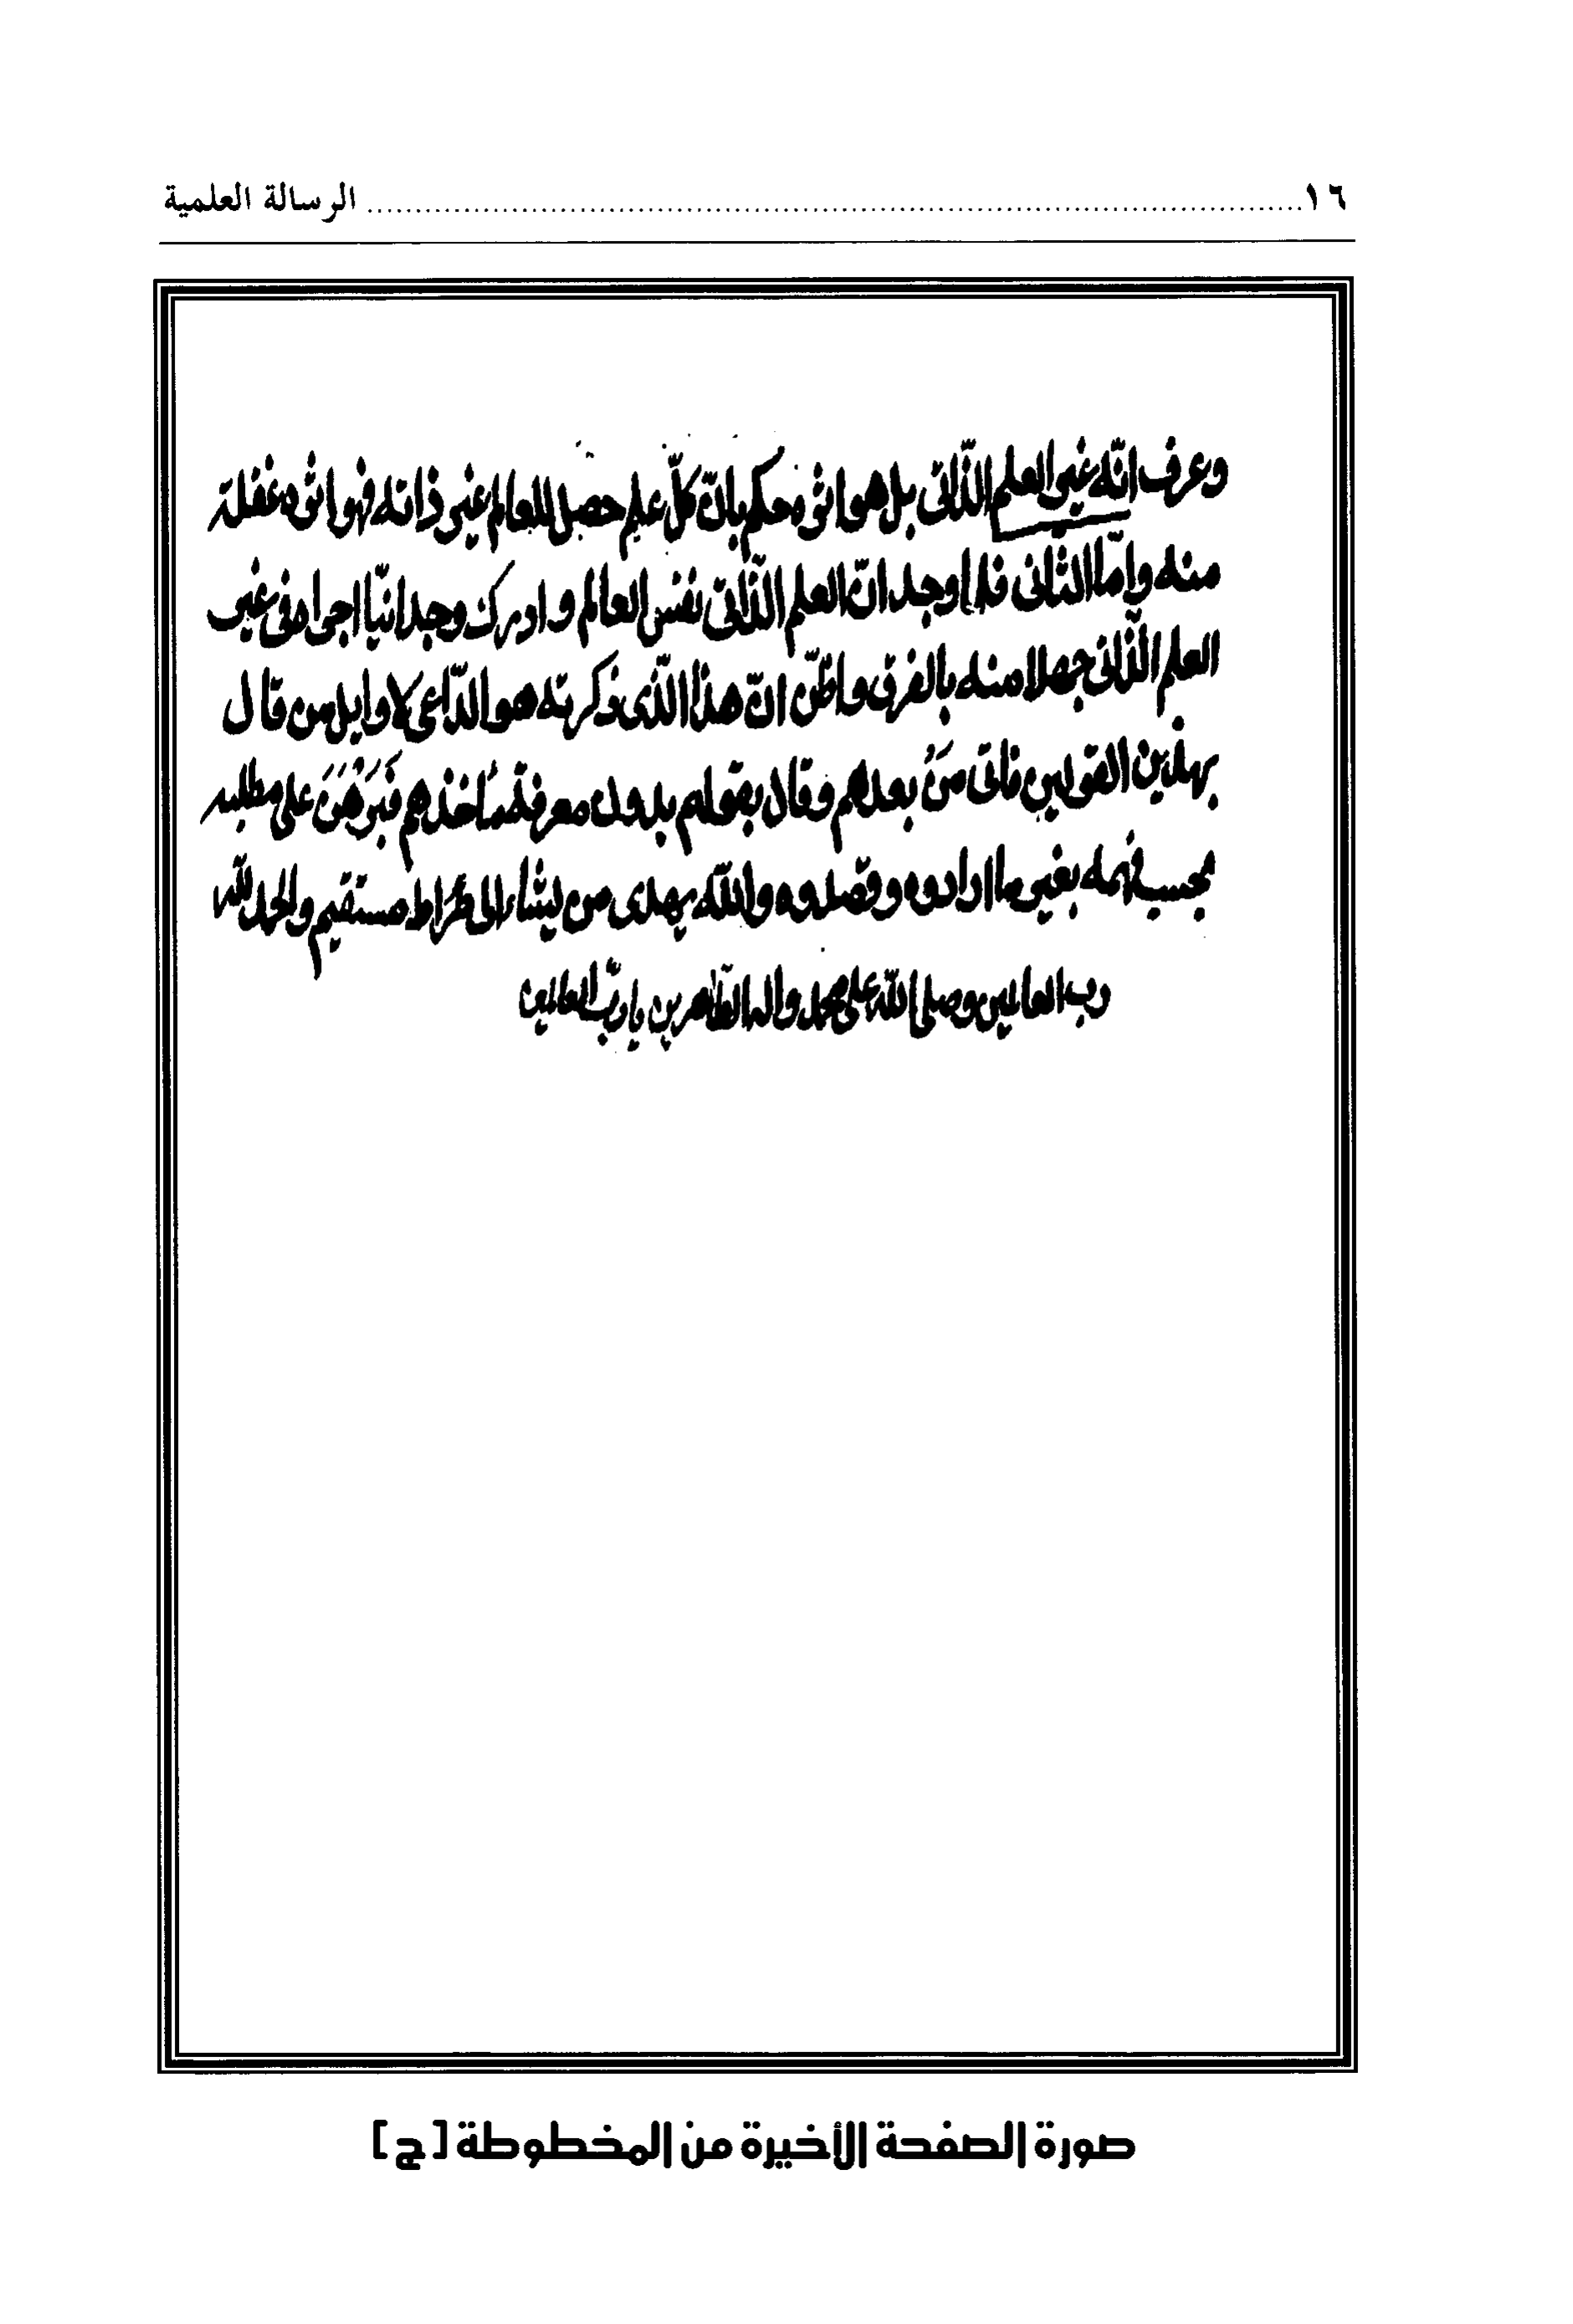 ١٦ ........ الرسالة العلمية
وعرف انّه غير العلم الذّاتى بل هو اثره محكم بانّ كلّ علم حصل للعالم غير ذاته فهو اثره غفلة
منه وامّا الثانى فلما وجد انّ العلم الذّاتى نفس العالم و ادرك وجدانيّا اجراه فى غير
العلم الذّاتى جهلا منه بالفرق واظنّ انّ هذا الذّى ذكرته هو الدّاعى لاوايل من قال
بهذين القولين فاتى مَنْ بعدهم وقال بقولهم بدون معرفة مأخذهم فَبَرْهَنَ على مطلبه
بحسب فهمه بغير ما ارادوه وقصدوه واللّه يهدى من يشاء الى صراط مستقيم والحمد للّه
رب العالمين وصلى اللّه على محمد واله الطّاهرين يا ربّ العالمين
صورة الصفحة الأخيرة من المخطوطة [ج]